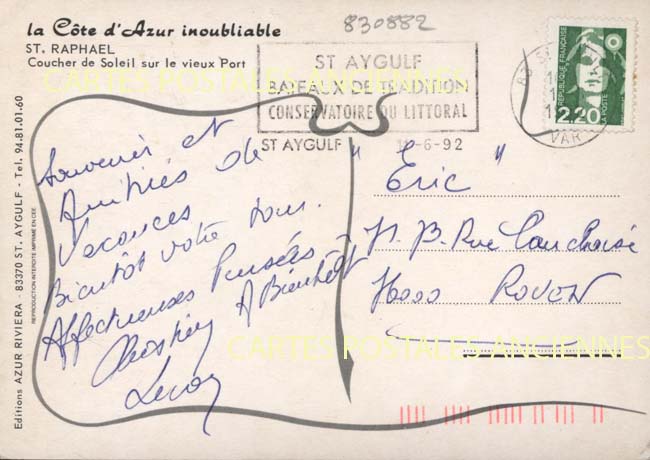 830882
la Côte d'Azur inoubliable
ST. RAPHAEL
Coucher de Soleil sur le vieux Port
ST AYGULF
BATEAUX DE TRADITION
CONSERVATOIRE DU LITTORAL
ST AYGULF -6-92
VAR
REPUBLIQUE FRANÇAISE
2,20
LA POSTE
CARTES POSTALES ANCIENNES
Souvenir et
Amitiés de
Vacances
Bientôt votre tour.
Affectueuses Pensées
A Bientôt
Leroy
" Eric "
Rue
76000 ROUEN
CARTES POSTALES ANCIENNES
Editions AZUR RIVIERA - 83370 ST. AYGULF - Tel. 94.81.01.60
REPRODUCTION INTERDITE IMPRIMÉ EN CEE